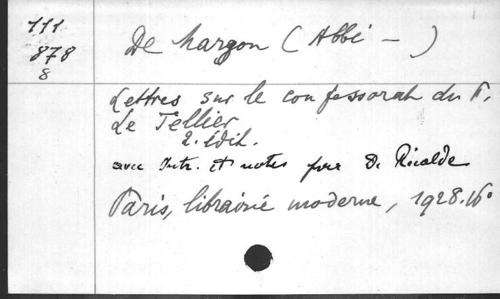 111
878
8
De Margon (Abbé —)
Lettres sur le confessorat du P.
Le Tellier
2. édit.
avec Intr. et notes par D. Ricalde
Paris, librairie moderne, 1928. 16°